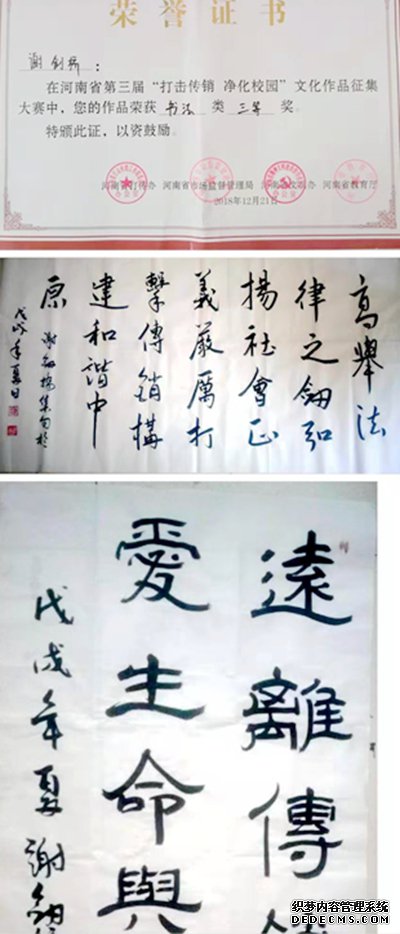 荣誉证书
谢剑桥：
在河南省第三届“打击传销 净化校园”文化作品征集
大赛中，您的作品荣获 书法 类 三等 奖。
特颁此证，以资鼓励。
河南省打传办 河南省市场监督管理局 河南省文明办 河南省教育厅
2018年12月21日
高舉法
律之劍弘
揚社會正
義嚴厲打
擊傳銷構
建和諧中
原
謝劍橋集句於
戊戌年夏日
遠離傳
愛生命與
戊戌年夏謝劍
织梦内容管理系统
DEDECMS.COM